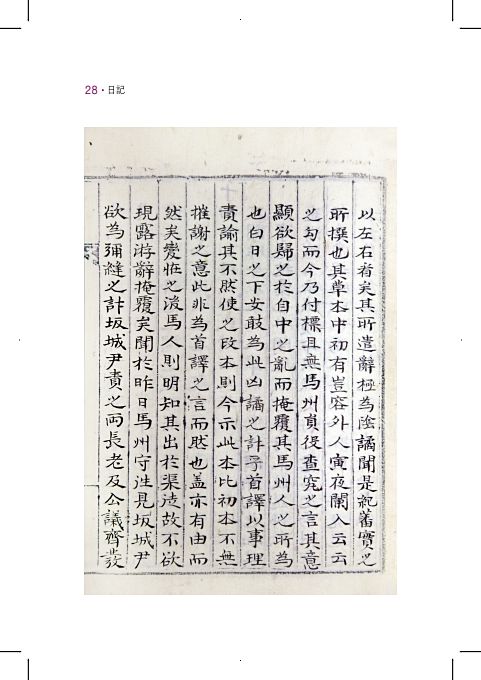 28・日記
以左右有矣其所遣辭極為陰譎聞是紀蕃實之
所撰也其草本中初有豈容外人寅夜闌入云云
之句而今乃付標且無馬州員役查究之言其意
顯欲歸之於自中之亂而掩覆其馬州人之所為
也白日之下安敢為此凶譎之計乎首譯以事理
責諭其不然使之改本則今示此本比初本不無
摧謝之意此非為首譯之言而然也盖亦有由而
然矣變怪之後馬人則明知其出於渠徒故不欲
現露游辭掩覆矣聞於昨日馬州守徃見坂城尹
欲為彌縫之計坂城尹責之两長老及公議齊發